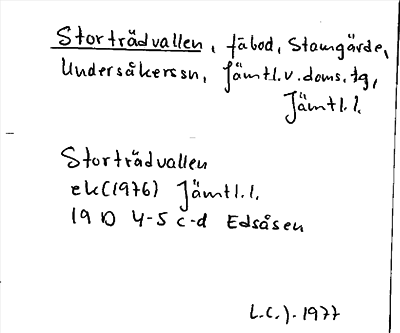 Stortrådvallen, fäbod, Stamgärde,
Undersåkerssn, Jämtl.v.doms.tg,
Jämtl.l.
Stortrådvallen
ek(1976) Jämtl.l.
19 D 4-5 c-d Edsåsen
L.C.J. 1977